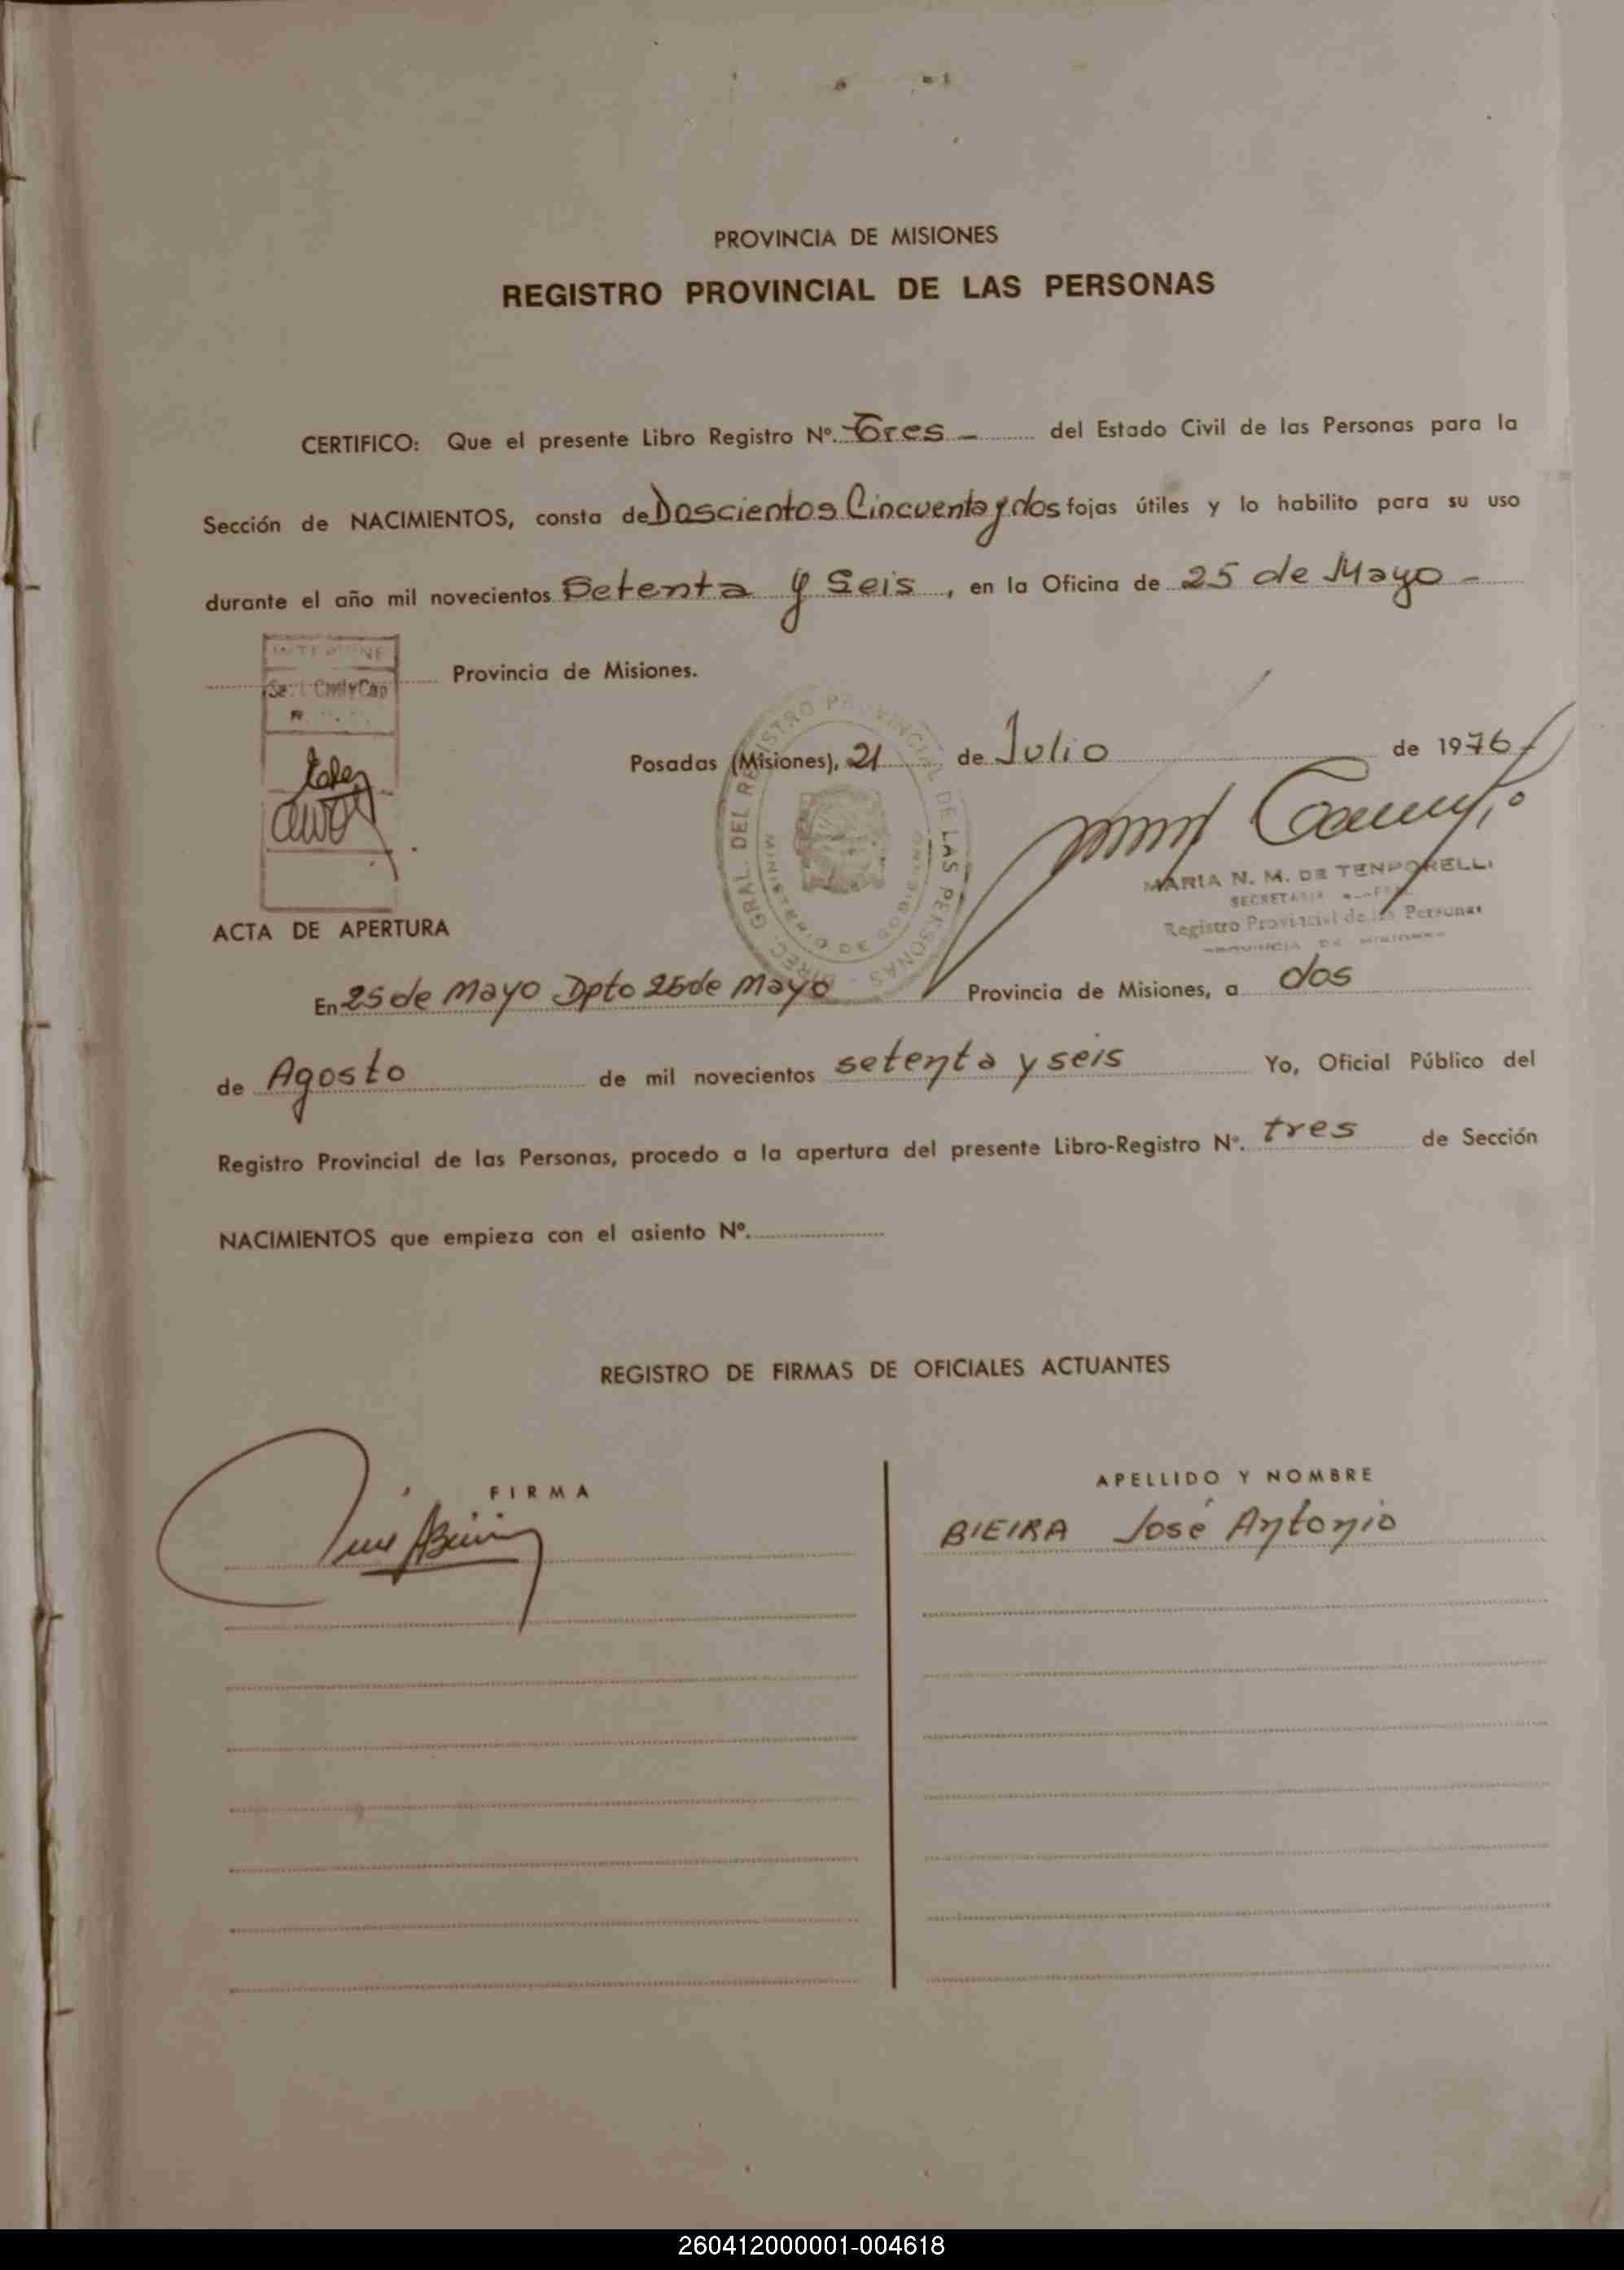 PROVINCIA DE MISIONES
REGISTRO PROVINCIAL DE LAS PERSONAS
CERTIFICO: Que el presente Libro Registro Nº. Tres - del Estado Civil de las Personas para la
Sección de NACIMIENTOS, consta de Doscientos Cincuenta y dos fojas útiles y lo habilito para su uso
durante el año mil novecientos Setenta y Seis, en la Oficina de 25 de Mayo -
Provincia de Misiones.
Posadas (Misiones), 21 de Julio de 1976
DIREC. GRAL. DEL REGISTRO PROVINCIAL DE LAS PERSONAS
MARIA N. M. DE TEMPORELLI
Registro Provincial de las Personas
PROVINCIA DE MISIONES
ACTA DE APERTURA
En 25 de Mayo Dpto 25 de Mayo Provincia de Misiones, a dos
de Agosto de mil novecientos setenta y seis Yo, Oficial Público del
Registro Provincial de las Personas, procedo a la apertura del presente Libro-Registro Nº. tres de Sección
NACIMIENTOS que empieza con el asiento Nº.
REGISTRO DE FIRMAS DE OFICIALES ACTUANTES
FIRMA
APELLIDO Y NOMBRE
BIEIRA José Antonio
260412000001-004618